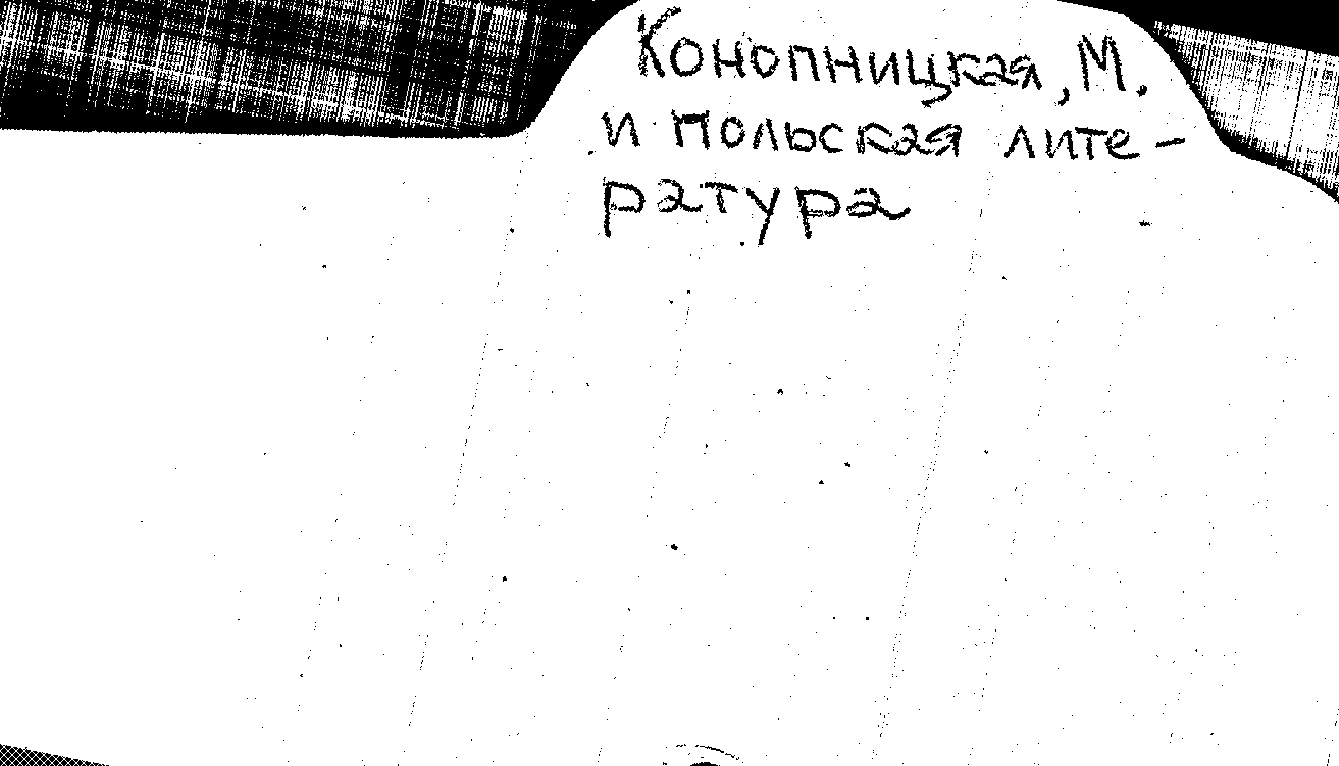 Конопницкая, М.
и польская лите-
ратура